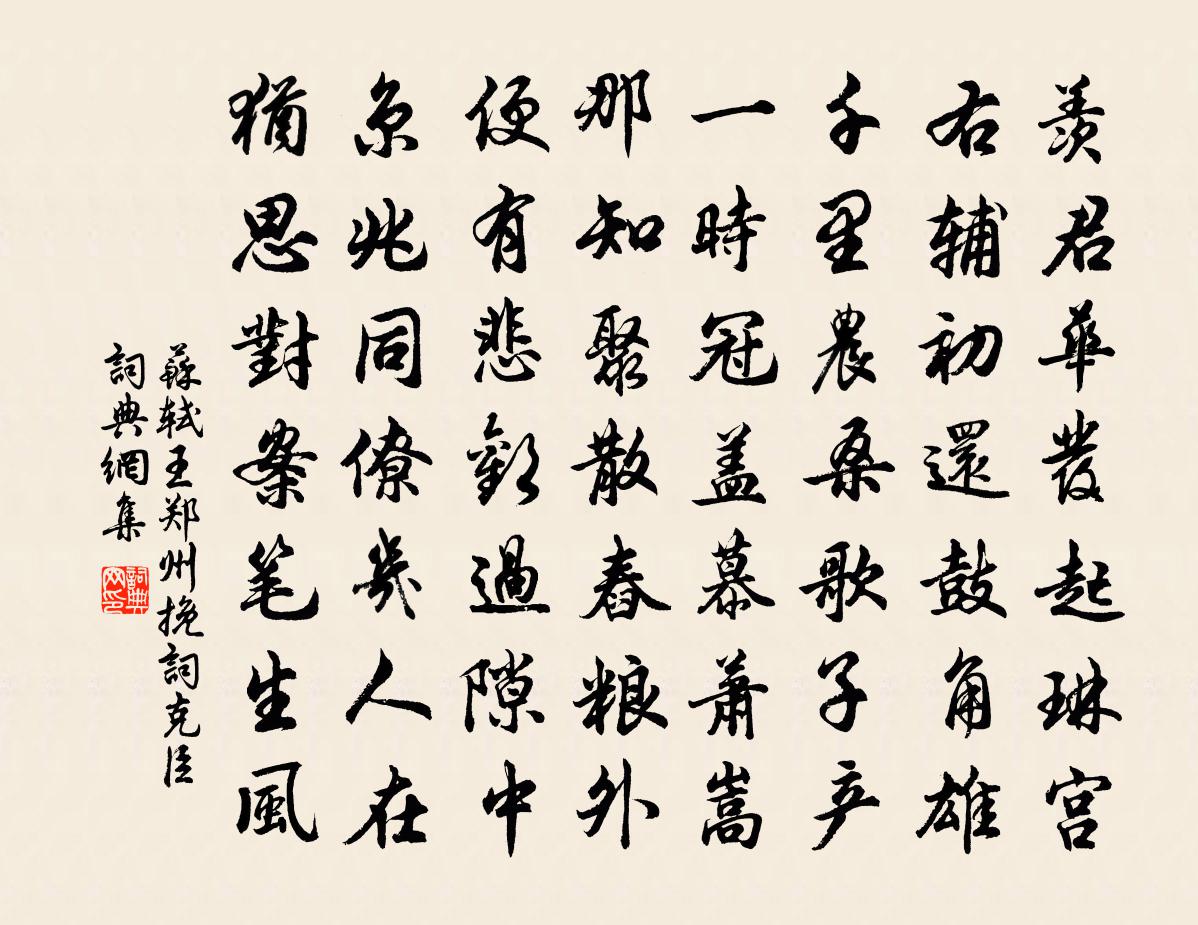 羨君華髮起琳宮
右辅初還鼓角雄
千里農桑歌子产
一時冠盖慕蕭嵩
那知聚散春粮外
便有悲歡過隙中
京兆同僚幾人在
猶思對案笔生風
蘇轼王郑州挽詞克臣
詞典網集
詞典